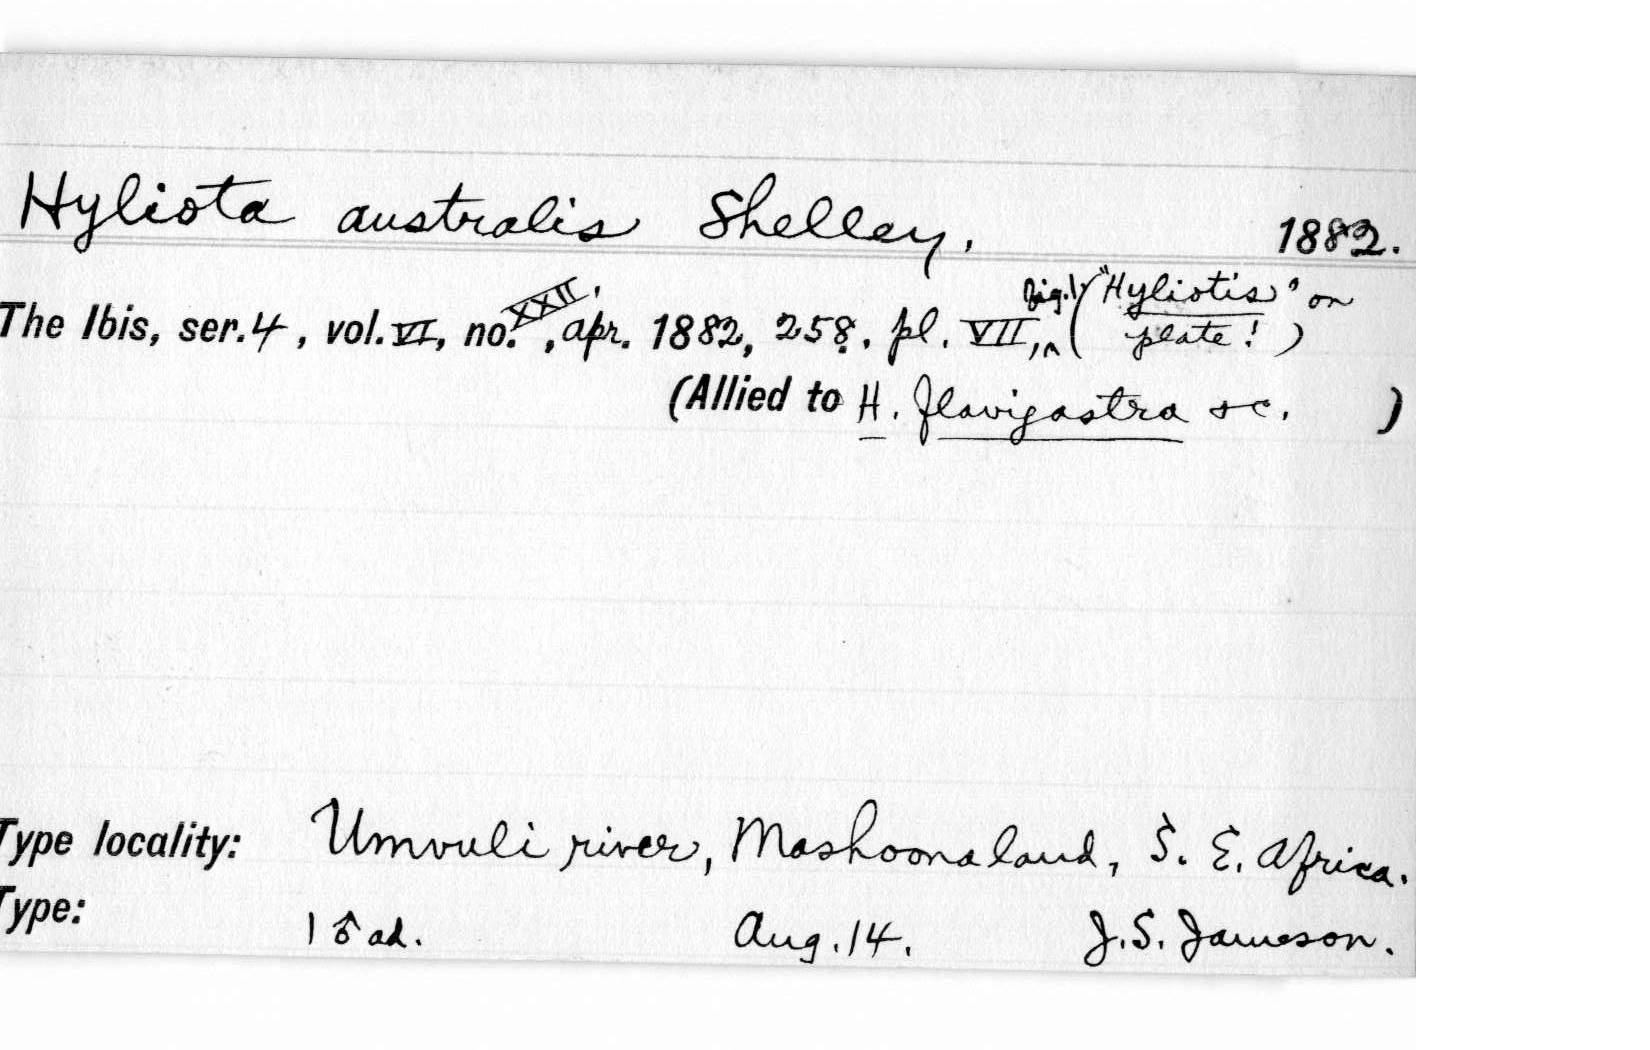 Hyliota australis Shelley. 1882.
The Ibis, ser. 4, vol. VI, no. XXII, apr. 1882, 258, pl. VII, fig. 1 ("Hyliotis" on
plate!)
(Allied to H. flavigastra &c. )
Type locality: Umvuli river, Mashoonaland, S. E. Africa.
Type: 1 ♂ ad. Aug. 14. J. S. Jameson.